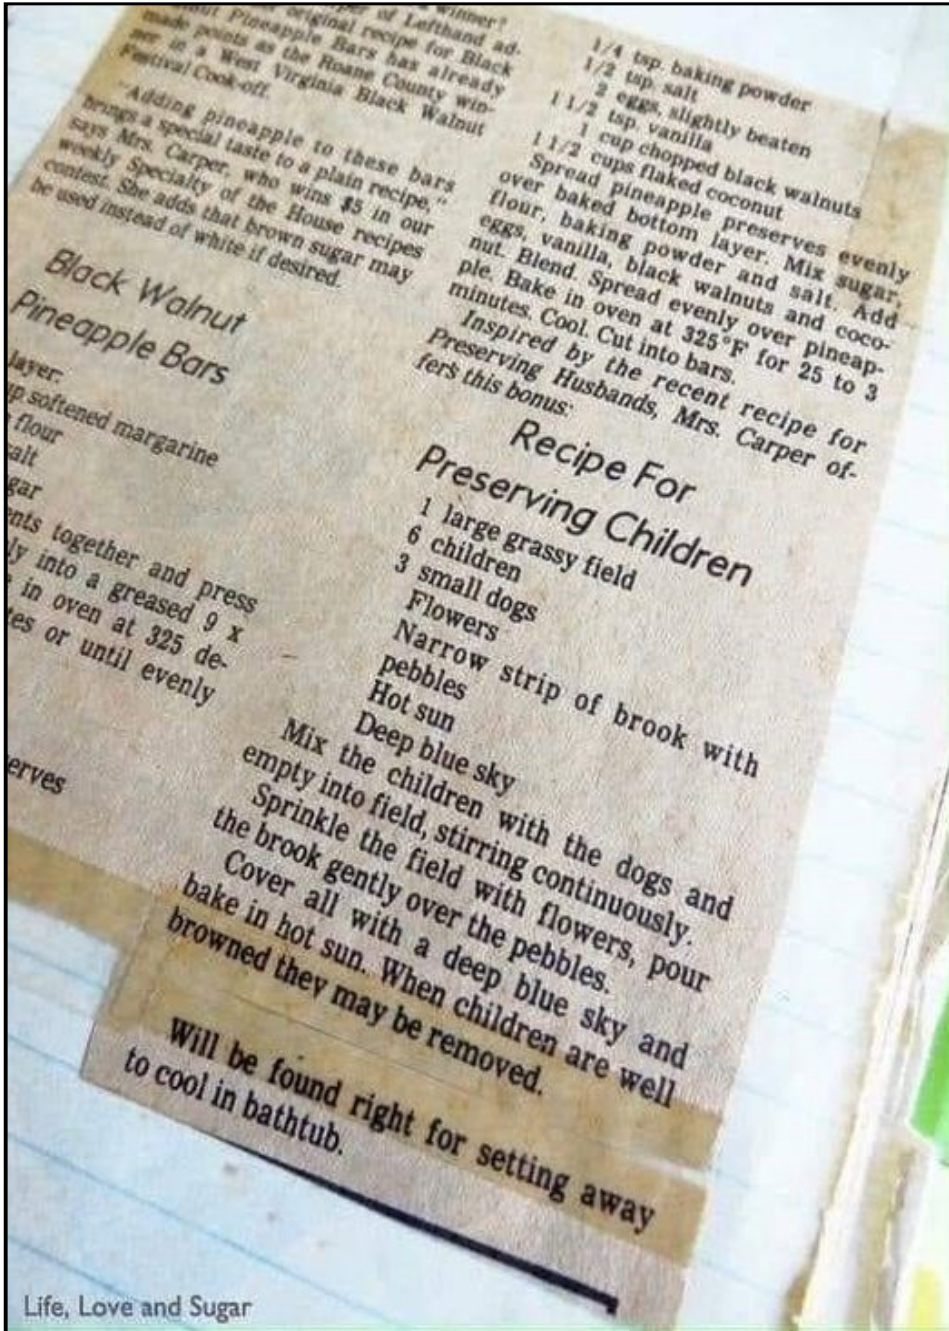 a winner?
of Lefthand ad-
original recipe for Black
Pineapple Bars has already
made points as the Roane County win-
ner in a West Virginia Black Walnut
Festival Cook-off.
"Adding pineapple to these bars
brings a special taste to a plain recipe,"
says Mrs. Carper, who wins $5 in our
weekly Specialty of the House recipes
contest. She adds that brown sugar may
be used instead of white if desired.
Black Walnut
Pineapple Bars
layer:
softened margarine
flour
together and press
into a greased 9 x
in oven at 325 de-
or until evenly
1/4 tsp. baking powder
1/2 tsp. salt
2 eggs, slightly beaten
1 1/2 tsp. vanilla
1 cup chopped black walnuts
1 1/2 cups flaked coconut
Spread pineapple preserves evenly
over baked bottom layer. Mix sugar,
flour, baking powder and salt. Add
eggs, vanilla, black walnuts and coco-
nut. Blend. Spread evenly over pineap-
ple. Bake in oven at 325°F for 25 to 3
minutes. Cool. Cut into bars.
Inspired by the recent recipe for
Preserving Husbands, Mrs. Carper of-
fers this bonus:
Recipe For
Preserving Children
1 large grassy field
6 children
3 small dogs
Flowers
Narrow strip of brook with
pebbles
Hot sun
Deep blue sky
Mix the children with the dogs and
empty into field, stirring continuously.
Sprinkle the field with flowers, pour
the brook gently over the pebbles.
Cover all with a deep blue sky and
bake in hot sun. When children are well
browned they may be removed.
Will be found right for setting away
to cool in bathtub.
Life, Love and Sugar